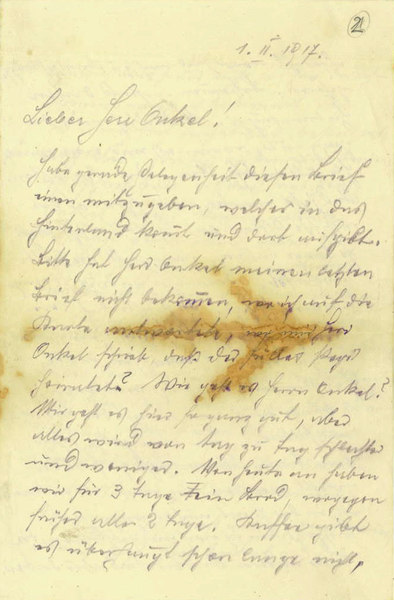 21
1. II. 1917.
Lieber Herr Onkel!
Habe gerade Gelegenheit diesen Brief
einen mitzugeben, welcher in das
Hinterland kommt und dort aufgibt.
Bitte hat Herr Onkel meinen letzten
Brief nicht bekommen, wo ich auf die
Karte antwortete, Herr
Onkel schrieb, daß der
heiratet? Wie geht es Herrn Onkel?
Mir geht es hier so ganz gut, aber
alles wird von Tag zu Tag schlechter
und weniger. Von heute an haben
wir für 3 Tage kein Brod, wogegen
früher alle 2 Tage. Kaffee gibt
es überhaupt schon lange nicht,